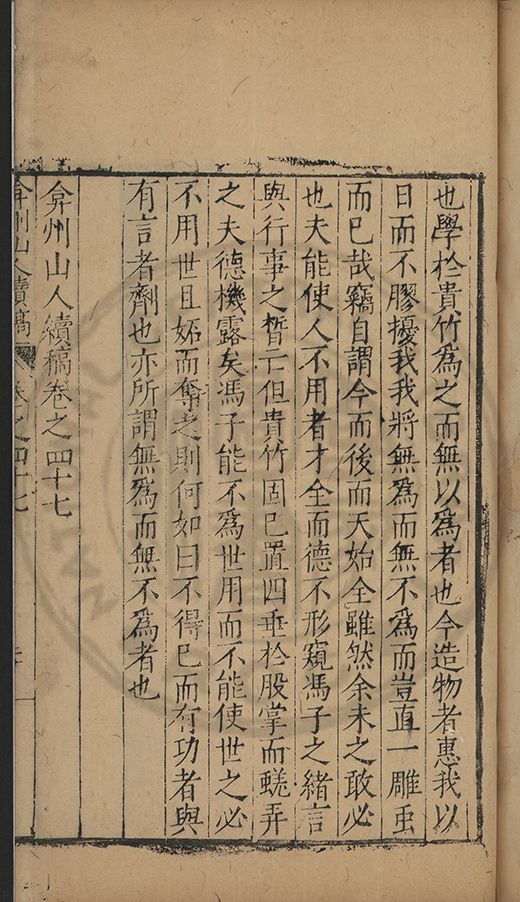 也學於貴竹爲之而無以爲者也今造物者惠我以
日而不膠擾我我將無爲而無不爲而豈直一雕虫
而已哉竊自謂今而後而天始全雖然余未之敢必
也夫能使人不用者才全而德不形窺馮子之緒言
與行事之皙亡但貴竹固已置四垂於股掌而蜣弄
之夫德機露矣馮子能不爲世用而不能使世之必
不用世且妬而奪之則何如曰不得已而有功者與
有言者劑也亦所謂無爲而無不爲者也
弇州山人續稿卷之四十七
弇州山人續稿 卷之四十七